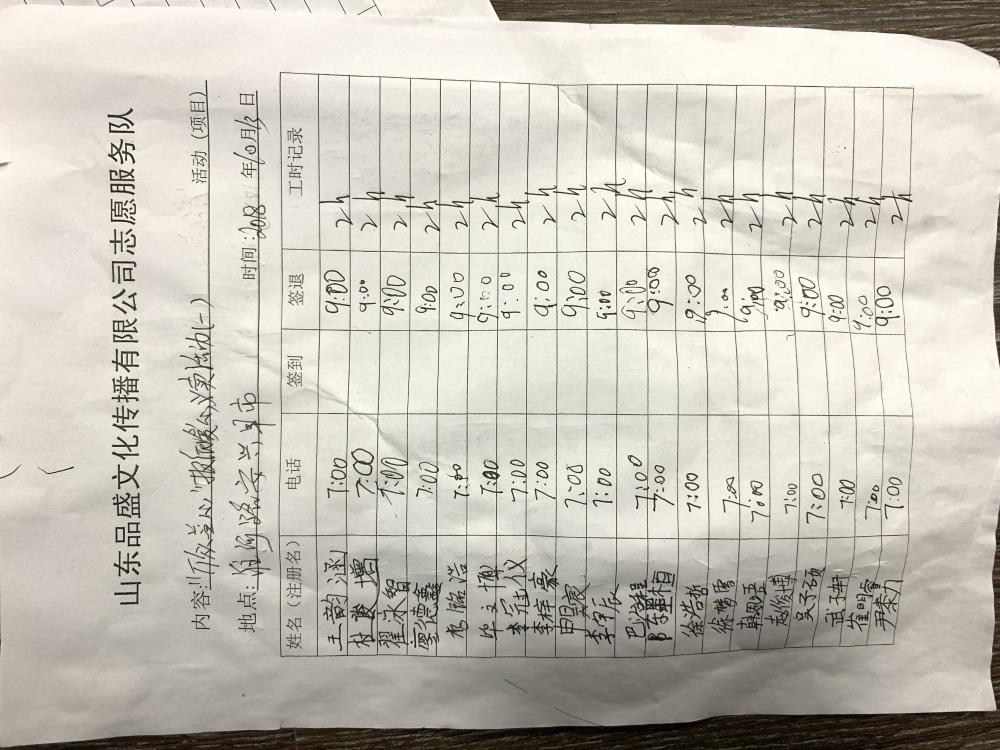 山东品盛文化传播有限公司志愿服务队
内容: 活动(项目)
地点: 时间:2018年10月13日
姓名(注册名) 电话 签到 签退 工时记录
王韵涵 7:00 9:00 2h
杜 增 7:00 9:00 2h
翟永智 7:00 9:00 2h
廖德鑫 7:00 9:00 2h
临浩 7:00 9:00 2h
毕文博 7:00 9:00 2h
李冠仪 7:00 9:00 2h
李梓豪 7:00 9:00 2h
田昊宸 7:00 9:00 2h
李宇辰 7:00 9:00 2h
巴泽 7:00 9:00 2h
7:00 9:00 2h
徐浩哲 7:00 9:00 2h
徐 7:00 9:00 2h
韩 7:00 9:00 2h
赵俊博 7:00 9:00 2h
吴子硕 7:00 9:00 2h
武子 7:00 9:00 2h
崔明睿 7:00 9:00 2h
尹 7:00 9:00 2h